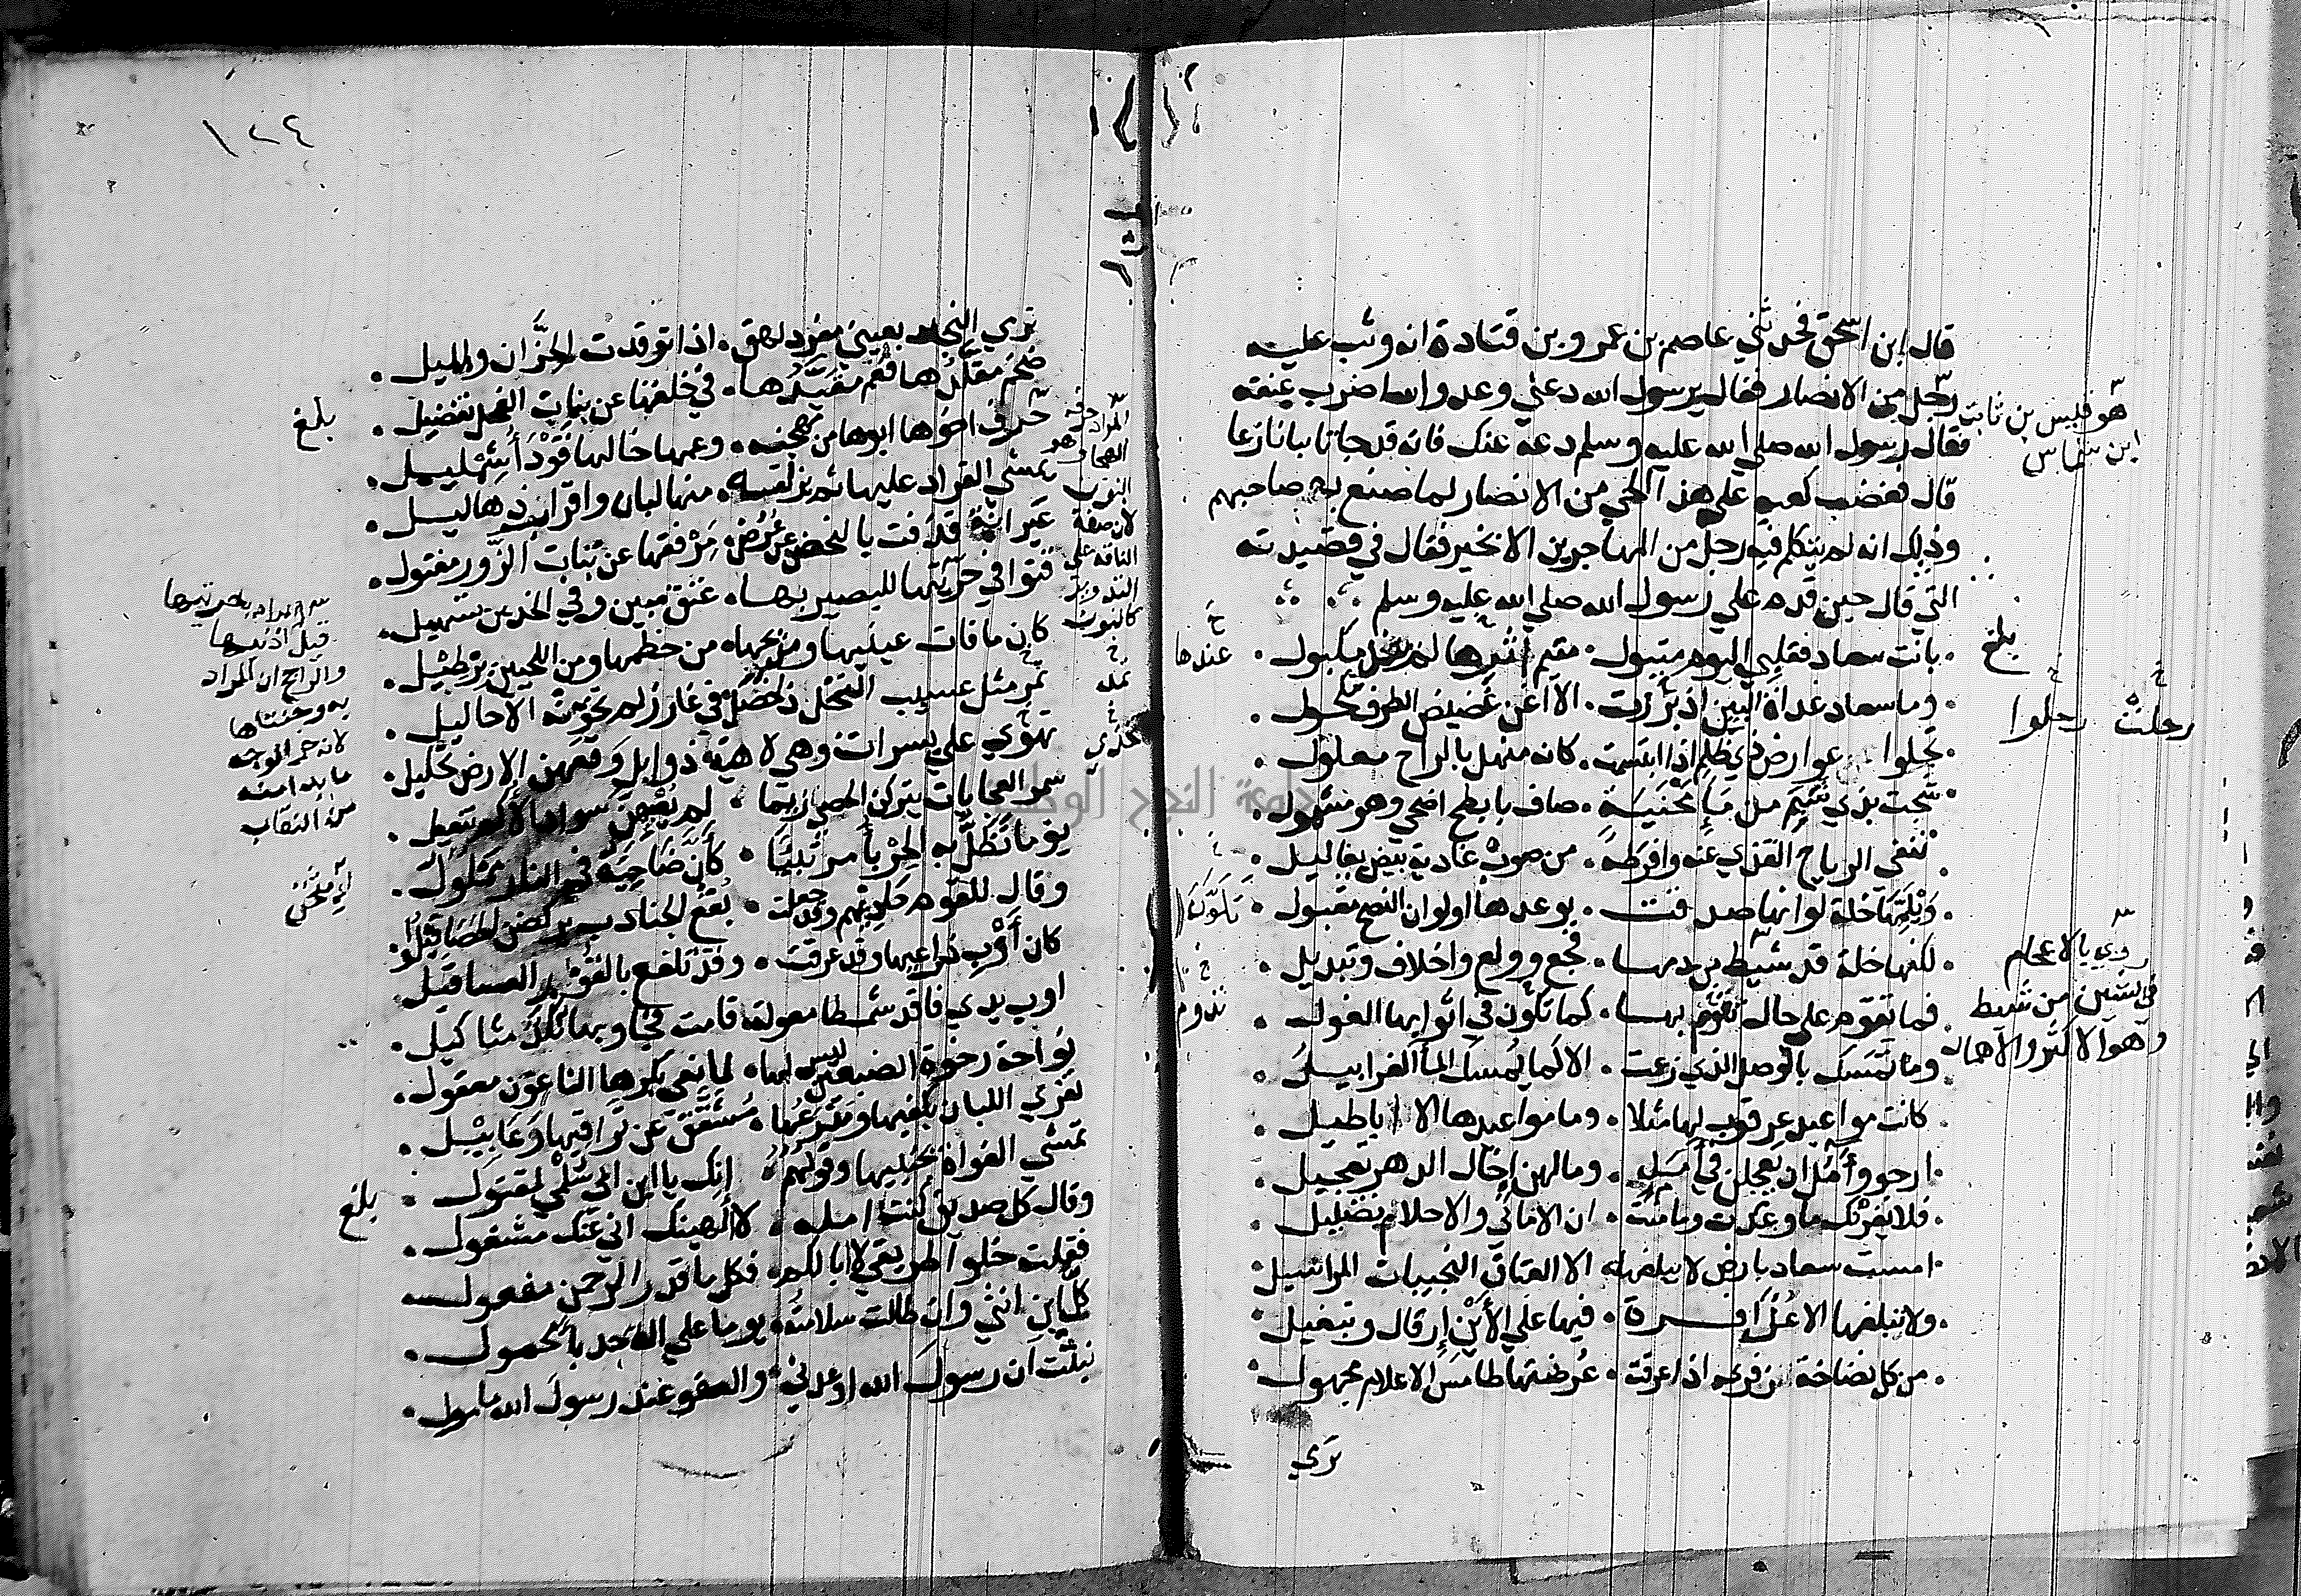 قال ابن اسحق فحدثني عاصم بن عمرو بن قتادة انه وثب عليه
رجل من الانصار فقال يرسول الله دعني وعدو الله اضرب عنقه
هو قيس بن ثابت
ابن شماس
فقال رسول الله صلي الله عليه وسلم دعه عنك فانه قد جا تائبا نازعا
قال فغضب كعب علي هذا الحي من الانصار لما صنع به صاحبهم
وذلك انه لم يتكلم فيه رجل من المهاجرين الا بخير فقال في قصيدته
التي قال حين قدم علي رسول الله صلي الله عليه وسلم
بانت سعاد فقلبي اليوم متبول . متيم اثرها لم مكبول .
بلغ
عندها
وما سعاد غداة البين اذ برزت . الا اغن غضيض الطرف مكحول .
رحلت رحلوا
تجلوا عوارض ذي ظلم اذا ابتسمت . كانه منهل بالراح معلول .
شجت بذي شيم من ما محنية . صاف بابطح اضحي وهو مشمول .
تنفي الرياح القذي عنه وافرطه . من صوب غادية بيض يعاليل .
ويلمها خلة لوانها صدقت . بوعدها اولوان النصح مقبول .
لكنها خلة قد شيط من دمها . فجع وولع واخلاف وتبديل .
روي بالاعجام
في الشين من شيط
وهو الاكثر والاهمال
فما تقوم علي حال تقوم بها . كما تلون في اثوابها الغول .
تكون
تدوم
وما تمسك بالوصل الذي زعمت . الا كما يمسك الما الغرابيل .
كانت مواعيد عرقوب لها مثلا . وما مواعيدها الا الاباطيل .
ارجو وآمل ان يعجلن في امل . وما لهن اخال الدهر تعجيل .
فلا يغرنك ما وعدت وما منت . ان الاماني والاحلام تضليل .
امست سعاد بارض لا يبلغها . الا العتاق النجيبات المراسيل .
ولا يبلغها الا عذافرة . فيها علي الاين ارقال وتبغيل .
من كل نضاخة الذفري اذا عرقت . عرضتها طامس الاعلام مجهول .
تري
١٢٤
تري النجاد بعيني مفرد لهق . اذا توقدت الحزان والميل .
ضخم مقلدها فعم مقيدها . في خلقها عن بنات الفحل تفضيل .
بلغ
حرف اخوها ابوها من مهجنة . وعمها خالها قودا شمليل .
يمشي القراد عليها ثم يزلقه . منها لبان واقراب زهاليل .
عيرانة قذفت بالنحض عن عرض . مرفقها عن بنات الزور مفتول .
قنوا في حرتيها للبصير بها . عتق مبين وفي الخدين تسهيل .
كان ما فات عينيها ومذبحها . من خطمها ومن اللحيين برطيل .
تمر مثل عسيب النخل ذا خصل . في غارز لم تخونه الاحاليل .
تهوي علي يسرات وهي لاهية . ذوابل وقعهن الارض تحليل .
سمر العجايات يتركن الحصي زيما . لم يقهن سواد الاكم تنعيل .
يوما تظل به الحربا مرتبئا . كان ضاحيه في النار مملول .
وقال للقوم حاديهم وقد جعلت . بقع الجنادب يركضن الحصا قيلوا .
كان اوب ذراعيها وقد عرقت . وقد تلفع بالقور العساقيل
اوب يدي فاقد شمطا معولة . قامت فجاوبها نكد مثاكيل .
نواحة رخوة الضبعين ليس لها . لما نعي بكرها الناعون معقول .
تفري اللبان بكفيها ومدرعها . مشقق عن تراقيها رعابيل .
تمشي الغواة بجنبيها وقولهم . انك يا ابن ابي سلمي لمقتول .
وقال كل صديق كنت امله . لا الهينك اني عنك مشغول .
بلغ
فقلت خلوا طريقي لا ابالكم . فكل ما قدر الرحمن مفعول .
كل ابن انثي وان طالت سلامته . يوما علي الة حدبا محمول .
نبئت ان رسول الله اوعدني . والعفو عند رسول الله مامول .
المراد حرف
لان صفة
الناقة علي
كالنون
قيل اذنيها
والراجح ان المراد
به وجنتاها
لانه حر الوجه
ما بدا منه
من النقاب